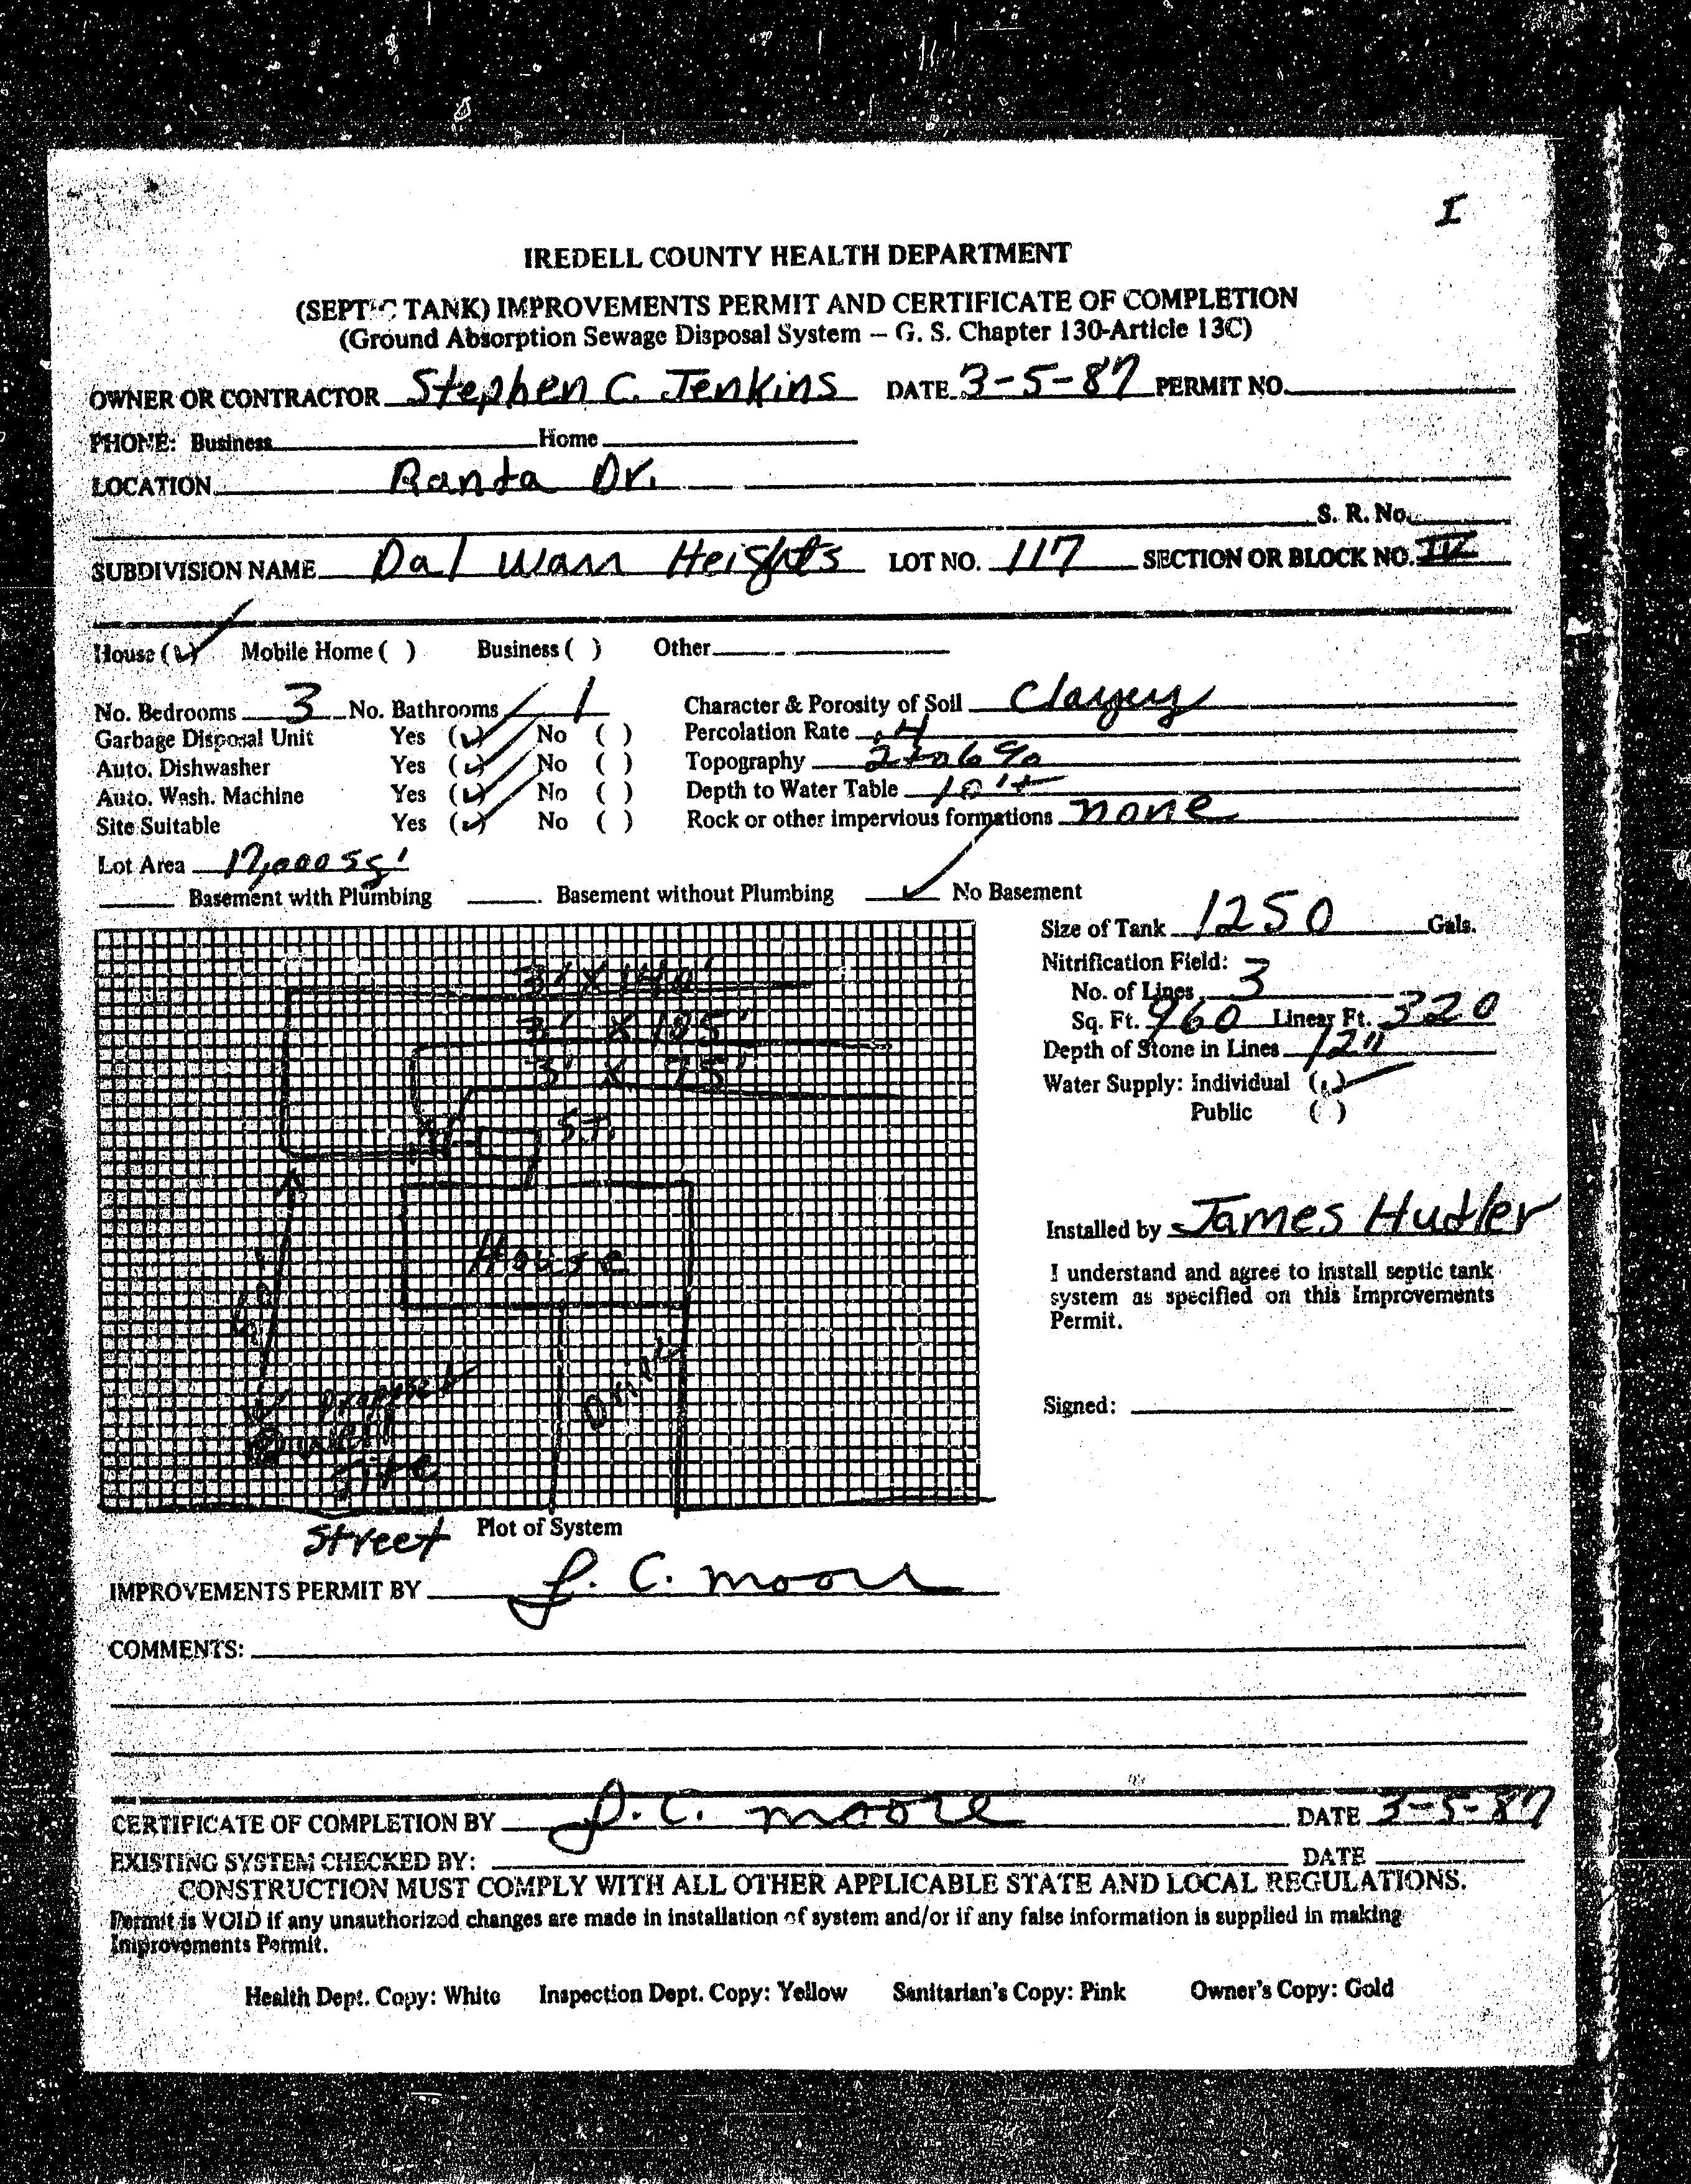 I
IREDELL COUNTY HEALTH DEPARTMENT
(SEPTIC TANK) IMPROVEMENTS PERMIT AND CERTIFICATE OF COMPLETION
(Ground Absorption Sewage Disposal System – G. S. Chapter 130-Article 13C)
OWNER OR CONTRACTOR Stephen C. Jenkins DATE 3-5-87 PERMIT NO.
PHONE: Business Home
LOCATION Ranta Dr.
S. R. No.
SUBDIVISION NAME Dal Wan Heights LOT NO. 117 SECTION OR BLOCK NO. IV
House (✓) Mobile Home ( ) Business ( ) Other
No. Bedrooms 3 No. Bathrooms 1 Character & Porosity of Soil Clayey
Garbage Disposal Unit Yes (✓) No ( ) Percolation Rate .4
Auto. Dishwasher Yes (✓) No ( ) Topography 2 to 6 %
Auto. Wash. Machine Yes (✓) No ( ) Depth to Water Table 10'+
Site Suitable Yes (✓) No ( ) Rock or other impervious formations none
Lot Area 17,000 sq'
Basement with Plumbing Basement without Plumbing ✓ No Basement
Size of Tank 1250 Gals.
Nitrification Field:
No. of Lines 3
Sq. Ft. 960 Linear Ft. 320
Depth of Stone in Lines 12"
Water Supply: Individual (✓)
Public ( )
Installed by James Hudler
I understand and agree to install septic tank
system as specified on this Improvements
Permit.
Signed:
3' X 140'
3' X 105'
3' X 75'
S.T.
House
Drive
Proposed
well
site
Street Plot of System
IMPROVEMENTS PERMIT BY J. C. Moore
COMMENTS:
CERTIFICATE OF COMPLETION BY J. C. Moore DATE 3-5-87
EXISTING SYSTEM CHECKED BY: DATE
CONSTRUCTION MUST COMPLY WITH ALL OTHER APPLICABLE STATE AND LOCAL REGULATIONS.
Permit is VOID if any unauthorized changes are made in installation of system and/or if any false information is supplied in making
Improvements Permit.
Health Dept. Copy: White Inspection Dept. Copy: Yellow Sanitarian's Copy: Pink Owner's Copy: Gold